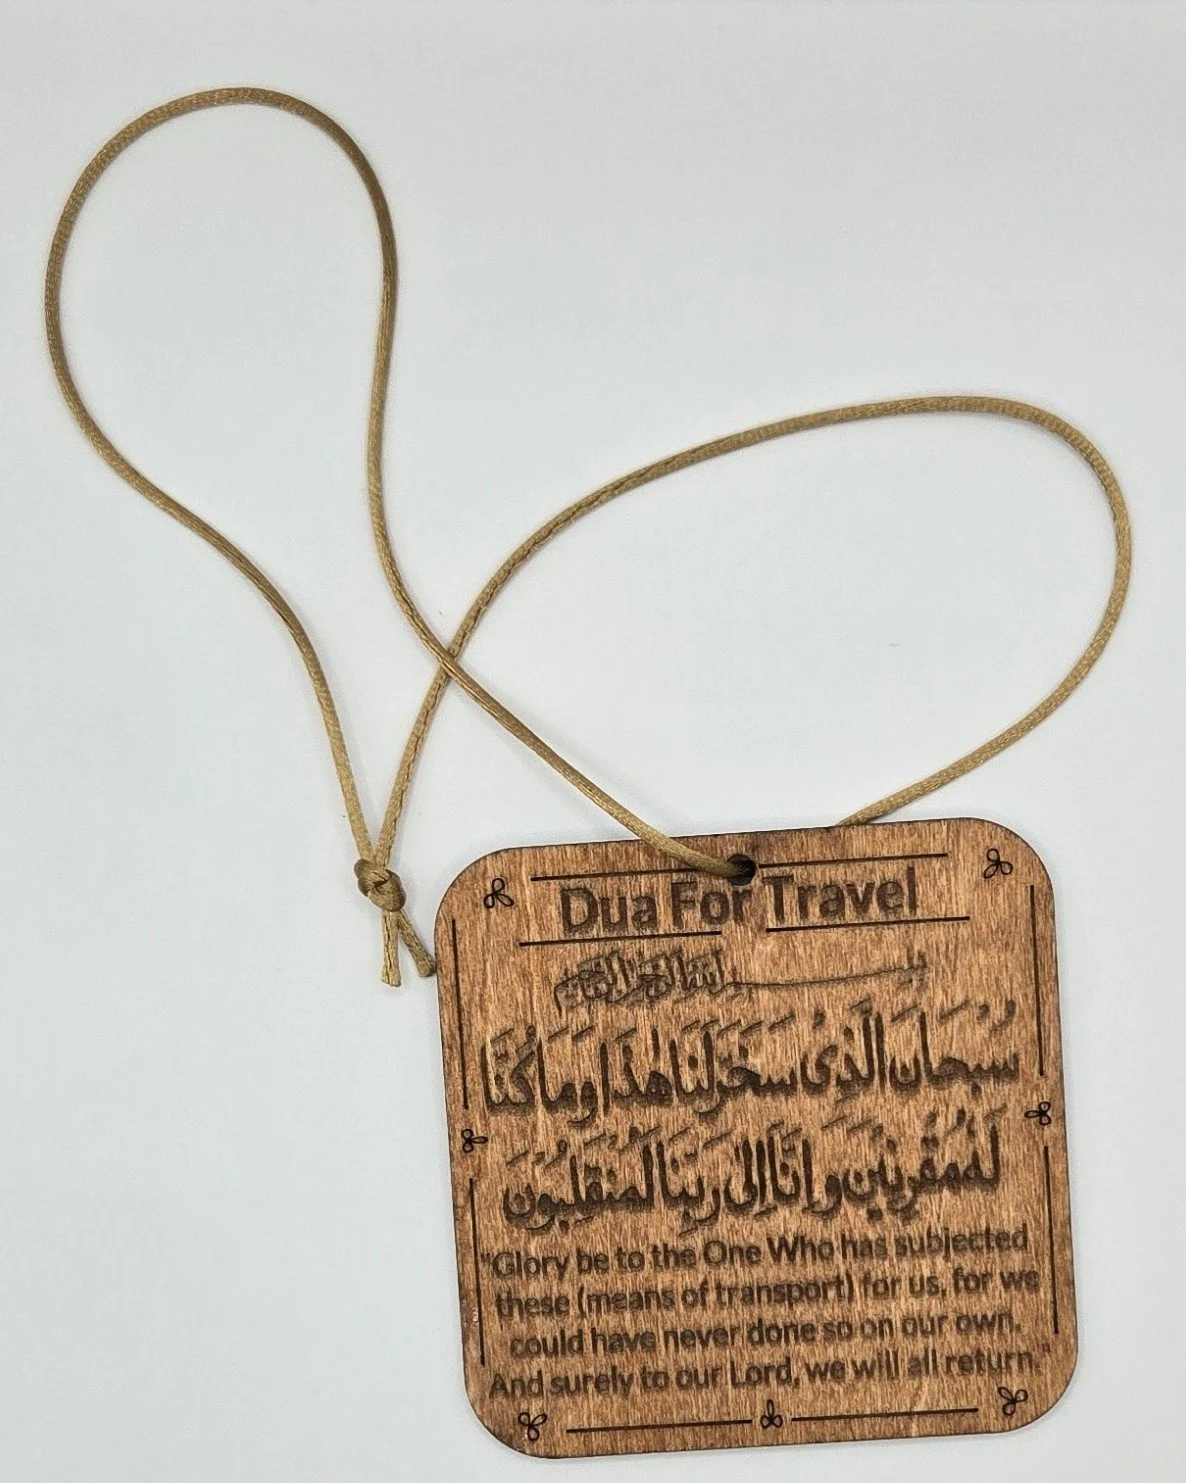 Dua For Travel
بسم الله الرحمن الرحيم
سُبْحَانَ الَّذِىْ سَخَّرَ لَنَا هٰذَا وَمَا كُنَّا
لَهُ مُقْرِنِيْنَ وَاِنَّا اِلىٰ رَبِّنَا لَمُنْقَلِبُوْنَ
"Glory be to the One Who has subjected
these (means of transport) for us, for we
could have never done so on our own.
And surely to our Lord, we will all return."